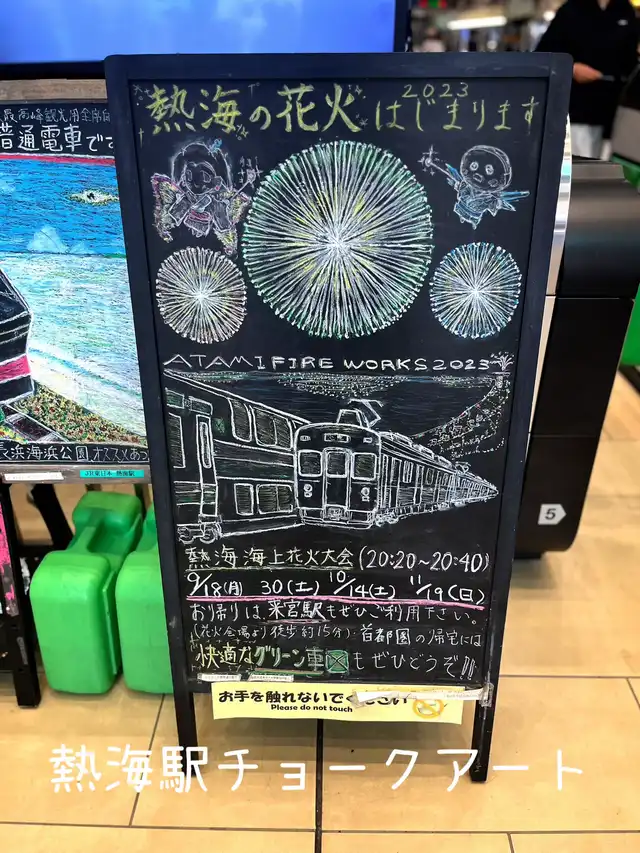 最高峰観光用全席
普通電車でさ
2023
熱海の花火はじまります
ATAMI FIRE WORKS 2023
長浜海浜公園 オススメあつ
JR東日本 熱海駅
5
熱海海上花火大会(20:20~20:40)
9/18(月) 30(土) 10/14(土) 11/19(日)
お帰りは、来宮駅もぜひご利用下さい。
(花火会場より徒歩約15分)・首都圏の帰宅には
快適なグリーン車もぜひどうぞ!!
お手を触れないでください
Please do not touch
熱海駅チョークアート